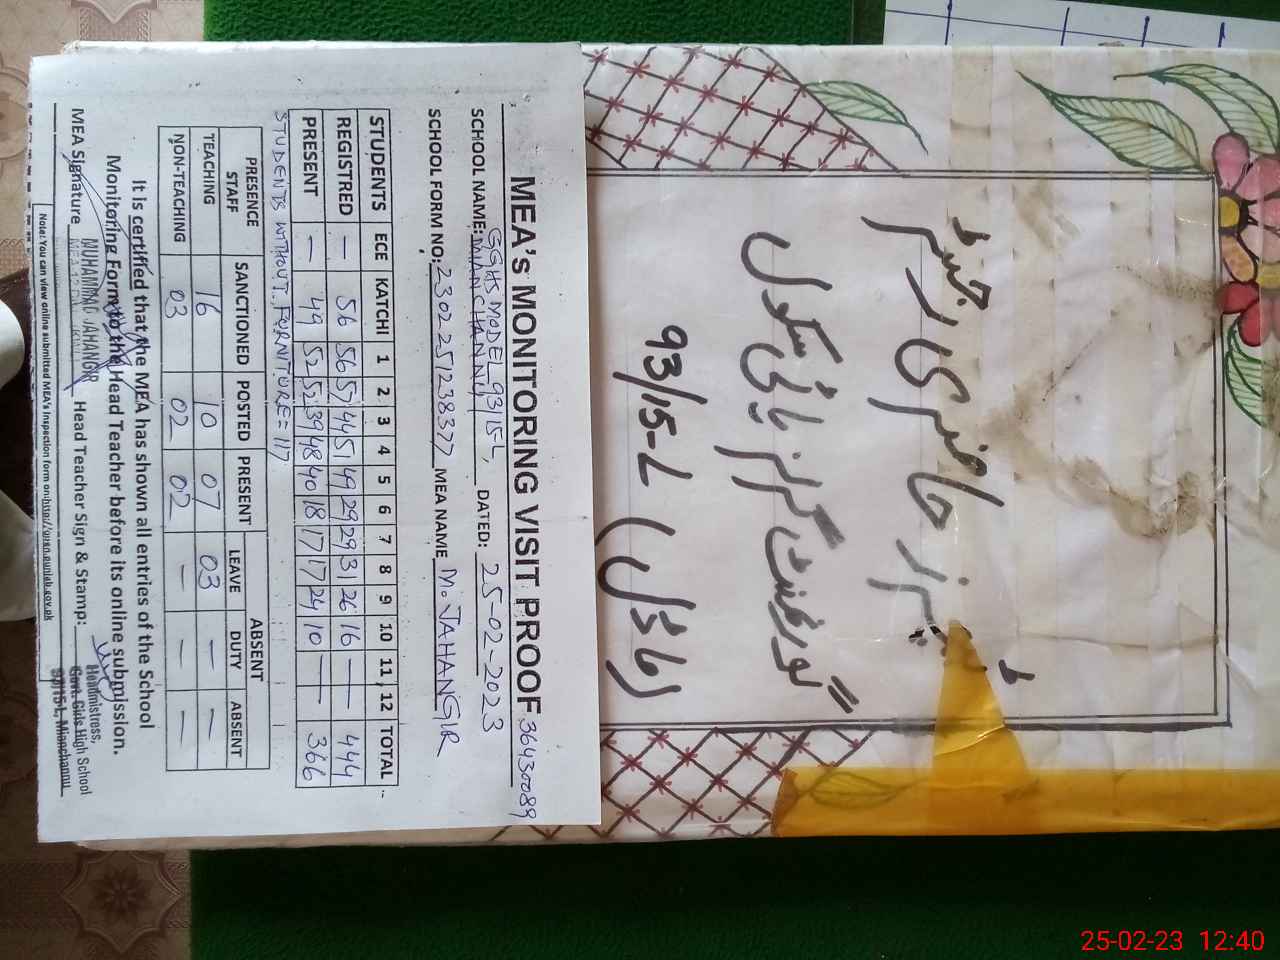 MEA's MONITORING VISIT PROOF 36430089
SCHOOL NAME: GGHS MODEL 93/15-L, MIANCHANNU DATED: 25-02-2023
SCHOOL FORM NO: 2302251238377 MEA NAME M. JAHANGIR
STUDENTS ECE KATCHI 1 2 3 4 5 6 7 8 9 10 11 12 TOTAL
REGISTRED — 56 56 57 44 51 49 29 29 31 26 16 — — 444
PRESENT — 49 52 52 39 48 40 18 17 17 24 10 — — 366
STUDENTS WITHOUT FURNITURE = 117
PRESENCE STAFF SANCTIONED POSTED PRESENT ABSENT
LEAVE DUTY ABSENT
TEACHING 16 10 07 03 — —
NON-TEACHING 03 02 02 — — —
It is certified that the MEA has shown all entries of the School
Monitoring Form to the Head Teacher before its online submission.
MEA Signature MUHAMMAD JAHANGIR Head Teacher Sign & Stamp: Headmistress,
Govt. Girls High School
93/15-L, Mianchannu
Note: You can view online submitted MEA's inspection form on:
ٹیچرز حاضری رجسٹر
گورنمنٹ گرلز ہائی سکول
93/15-L (ماڈل)
25-02-23 12:40